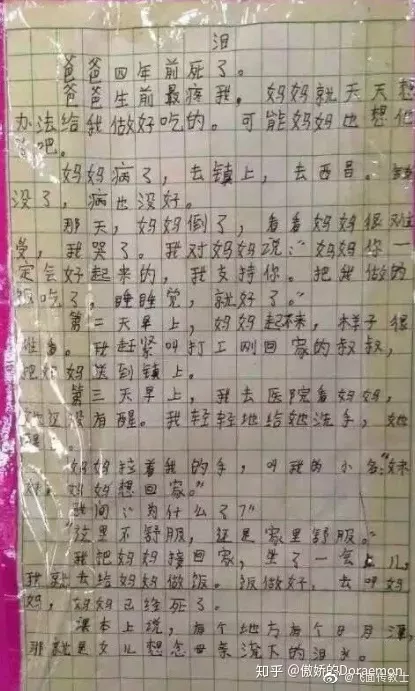 泪
爸爸四年前死了。
爸爸生前最疼我，妈妈就天天想
办法给我做好吃的。可能妈妈也想他
了吧。
妈妈病了，去镇上，去西昌。钱
没了，病也没好。
那天，妈妈倒了，看看妈妈很难
受，我哭了。我对妈妈说：“妈妈你一
定会好起来的，我支持你。把我做的
饭吃了，睡睡觉，就好了。”
第二天早上，妈妈起不来，样子很
难看。我赶紧叫打工刚回家的叔叔，
把妈妈送到镇上。
第三天早上，我去医院看妈妈，
她还没有醒。我轻轻地给她洗手，她
醒了。
妈妈拉着我的手，叫我的小名：“妹
妹，妈妈想回家。”
我问：“为什么了？”
“这里不舒服，还是家里舒服。”
我把妈妈接回家，坐了一会儿，
我就去给妈妈做饭。饭做好，去叫妈
妈，妈妈已经死了。
课本上说，有个地方有个日月潭，
那就是女儿想念母亲流下的泪水。
知乎 @傲娇的Doraemon.
@飞面传教士